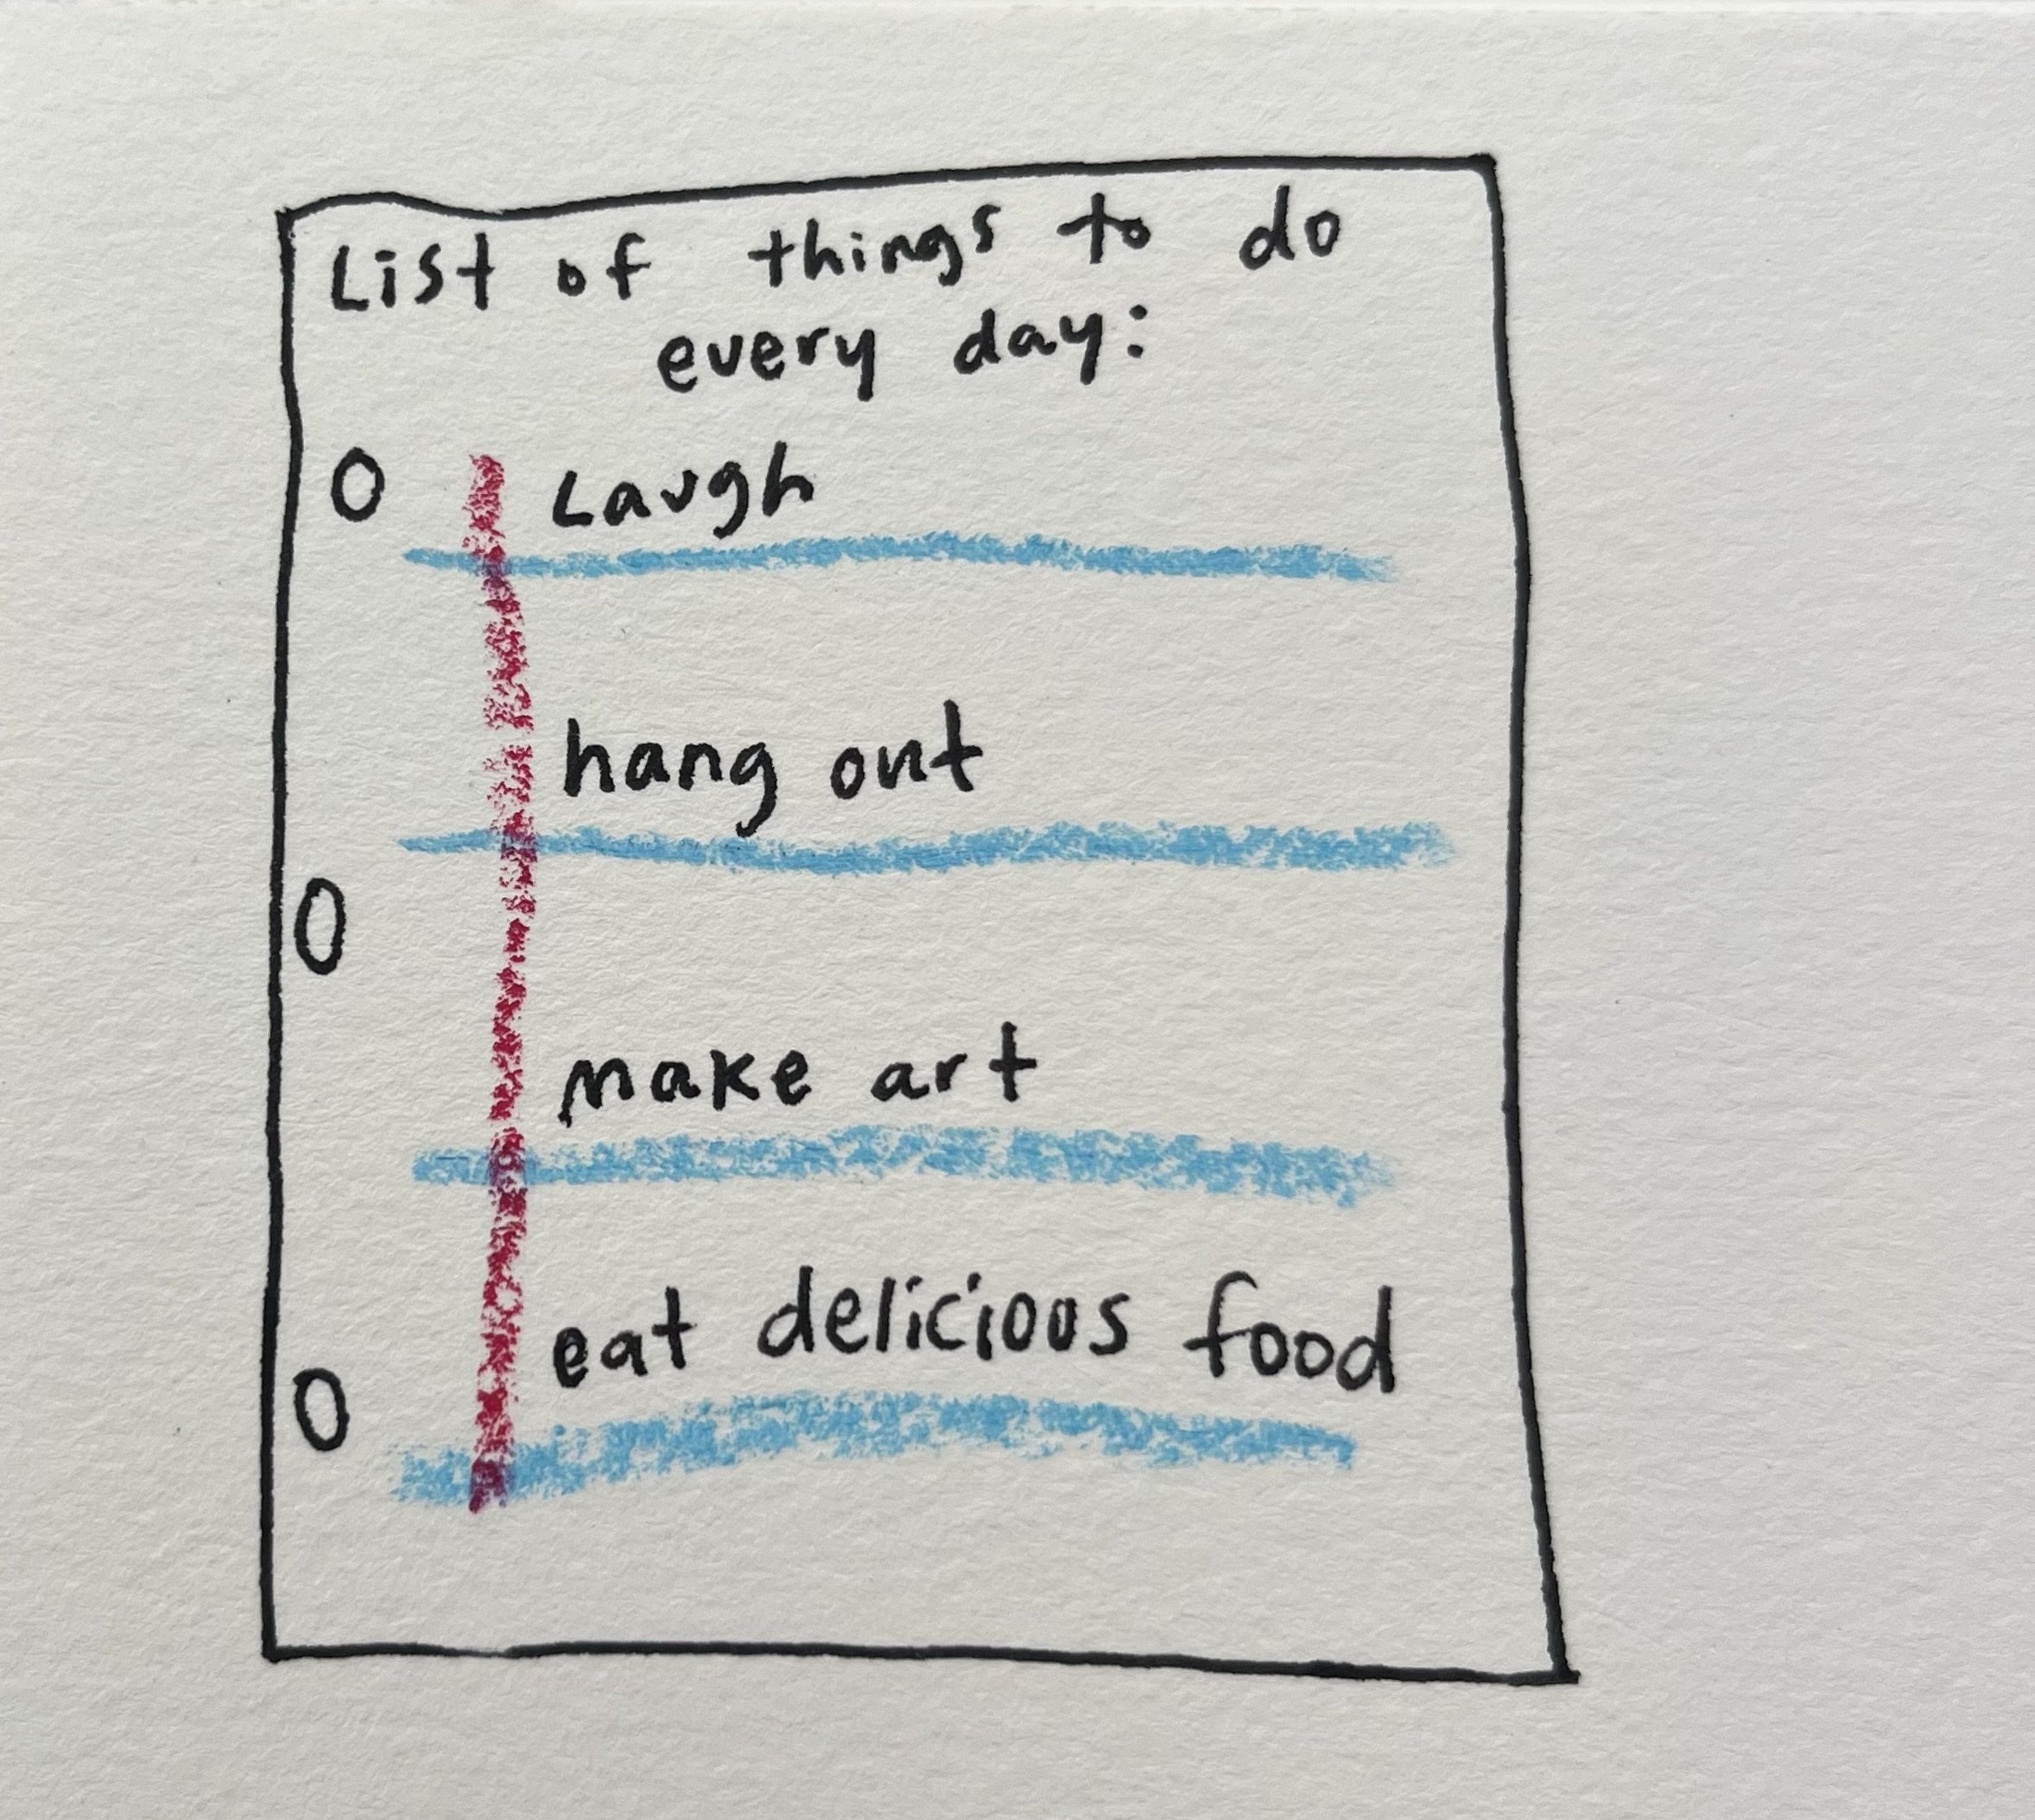 List of things to do
every day:
Laugh
hang out
make art
eat delicious food